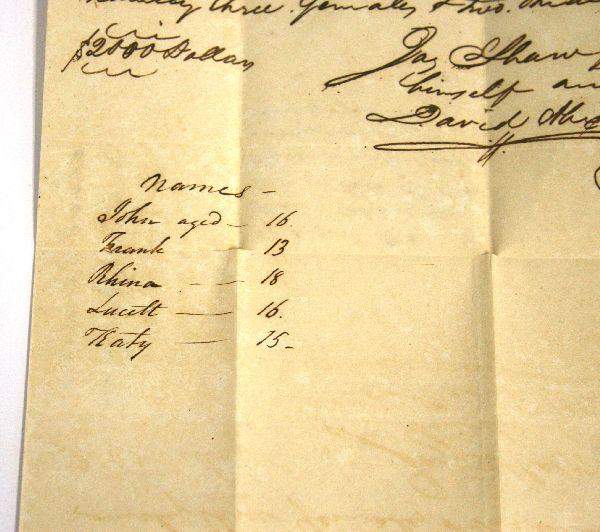 three females & two
$2000 Dollars
Jas Shaw
himself an
David
names -
John aged - 16.
Frank — 13
Rhina — 18
Lucett — 16.
Katy — 15 -